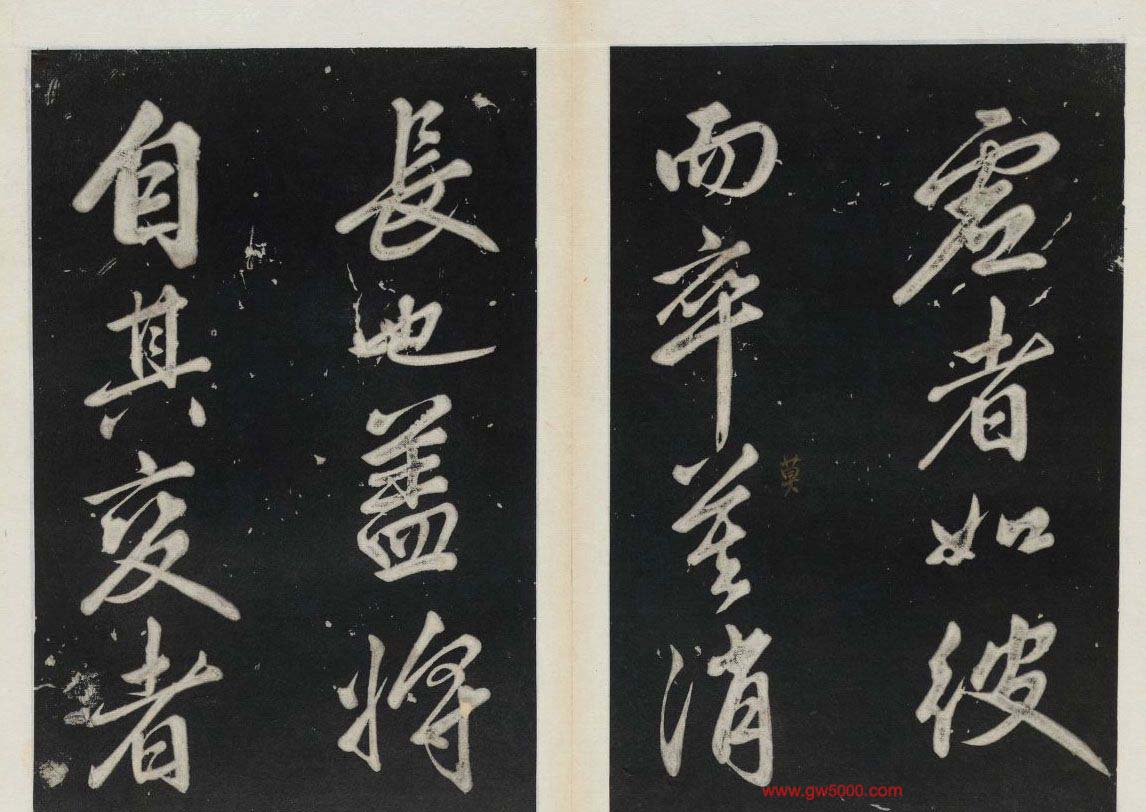 虛者如彼
而卒莫消
莫
長也蓋將
自其變者
www.gw5000.com